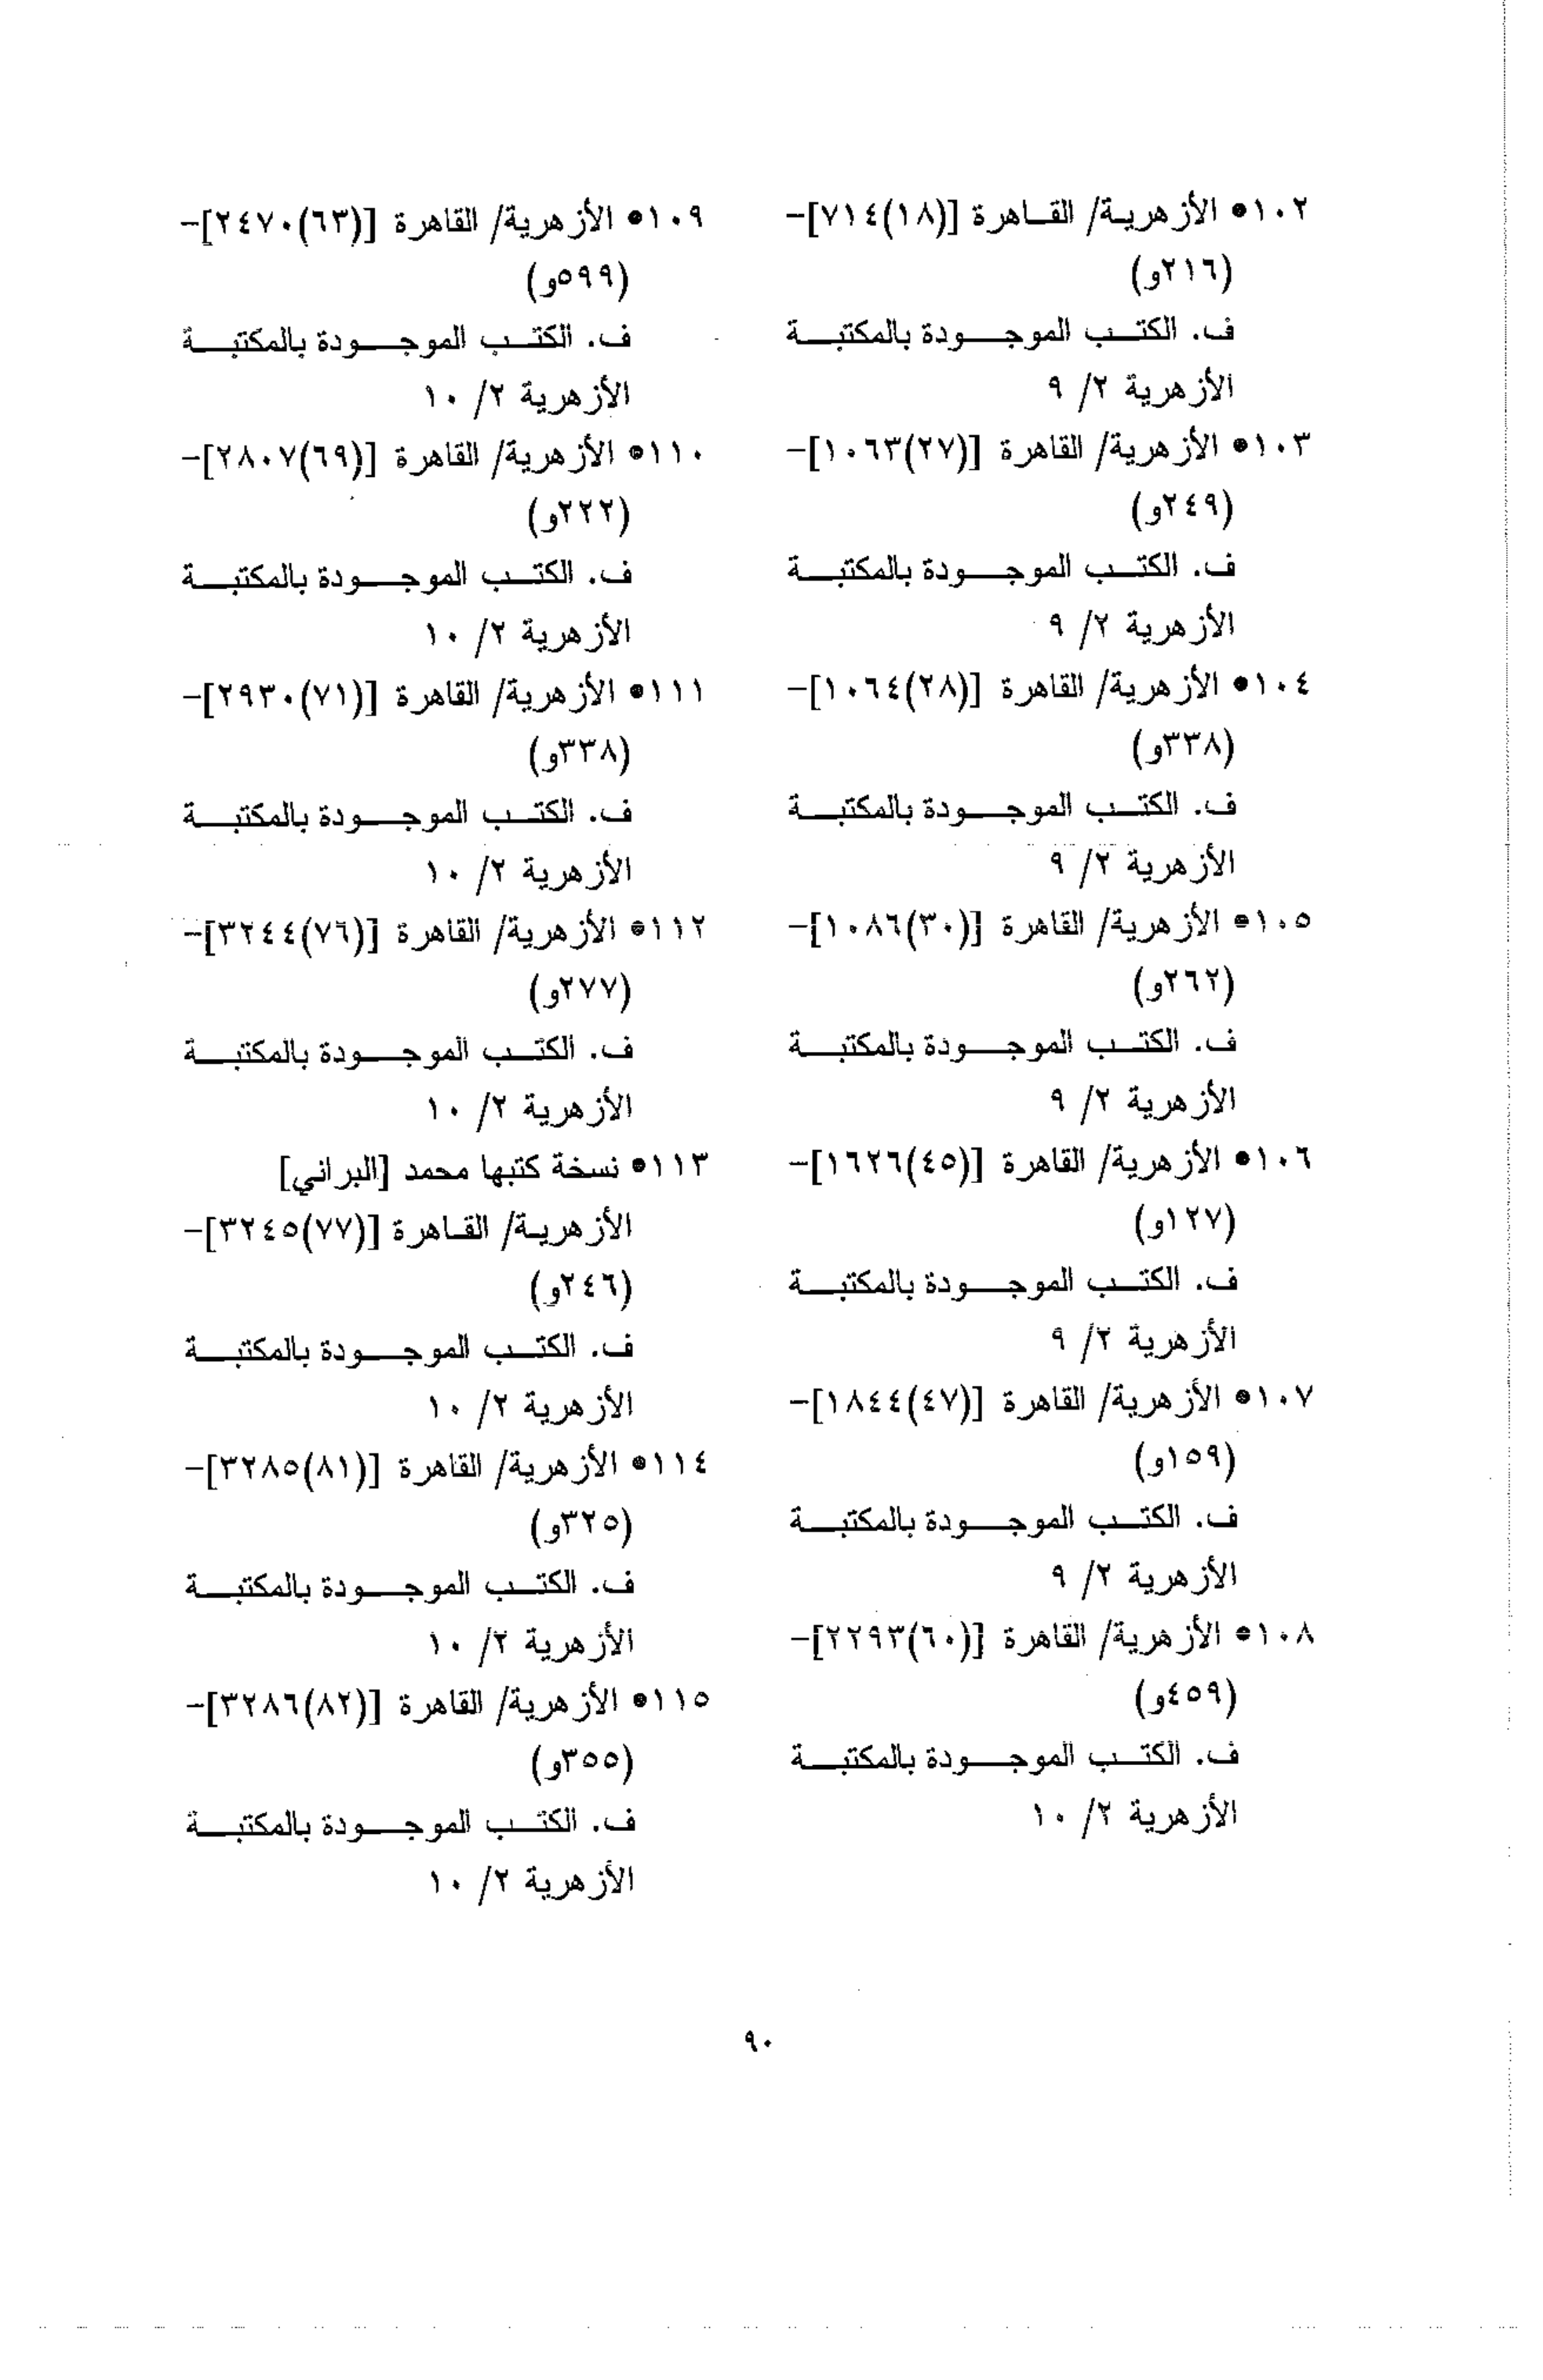 ١٠٢• الأزهرية/ القاهرة [(١٨)٧١٤]-
(٢١٦و)
ف. الكتب الموجودة بالمكتبة
الأزهرية ٢/ ٩
١٠٣• الأزهرية/ القاهرة [(٢٧)١٠٦٣]-
(٢٤٩و)
ف. الكتب الموجودة بالمكتبة
الأزهرية ٢/ ٩
١٠٤• الأزهرية/ القاهرة [(٢٨)١٠٦٤]-
(٣٣٨و)
ف. الكتب الموجودة بالمكتبة
الأزهرية ٢/ ٩
١٠٥• الأزهرية/ القاهرة [(٣٠)١٠٨٦]-
(٢٦٢و)
ف. الكتب الموجودة بالمكتبة
الأزهرية ٢/ ٩
١٠٦• الأزهرية/ القاهرة [(٤٥)١٦٢٦]-
(١٢٧و)
ف. الكتب الموجودة بالمكتبة
الأزهرية ٢/ ٩
١٠٧• الأزهرية/ القاهرة [(٤٧)١٨٤٤]-
(١٥٩و)
ف. الكتب الموجودة بالمكتبة
الأزهرية ٢/ ٩
١٠٨• الأزهرية/ القاهرة [(٦٠)٢٢٩٣]-
(٤٥٩و)
ف. الكتب الموجودة بالمكتبة
الأزهرية ٢/ ١٠
١٠٩• الأزهرية/ القاهرة [(٦٣)٢٤٧٠]-
(٥٩٩و)
ف. الكتب الموجودة بالمكتبة
الأزهرية ٢/ ١٠
١١٠• الأزهرية/ القاهرة [(٦٩)٢٨٠٧]-
(٢٢٢و)
ف. الكتب الموجودة بالمكتبة
الأزهرية ٢/ ١٠
١١١• الأزهرية/ القاهرة [(٧١)٢٩٣٠]-
(٣٣٨و)
ف. الكتب الموجودة بالمكتبة
الأزهرية ٢/ ١٠
١١٢• الأزهرية/ القاهرة [(٧٦)٣٢٤٤]-
(٢٧٧و)
ف. الكتب الموجودة بالمكتبة
الأزهرية ٢/ ١٠
١١٣• نسخة كتبها محمد [البراني]
الأزهرية/ القاهرة [(٧٧)٣٢٤٥]-
(٢٤٦و)
ف. الكتب الموجودة بالمكتبة
الأزهرية ٢/ ١٠
١١٤• الأزهرية/ القاهرة [(٨١)٣٢٨٥]-
(٣٢٥و)
ف. الكتب الموجودة بالمكتبة
الأزهرية ٢/ ١٠
١١٥• الأزهرية/ القاهرة [(٨٢)٣٢٨٦]-
(٣٥٥و)
ف. الكتب الموجودة بالمكتبة
الأزهرية ٢/ ١٠
٩٠